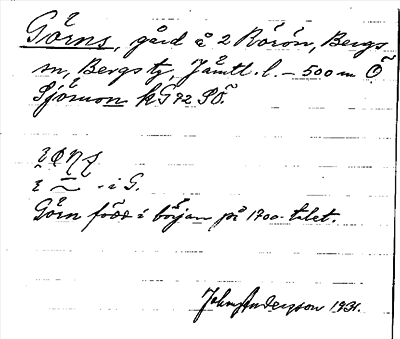 Görns, gård å 2 Rörön, Bergs
sn, Bergs tg, Jämtl. l. – 500 m Ö.
Sjörnon kG72 SÖ.
– i G.
Görn född i början på 1700-talet.
John Andersson 1931.